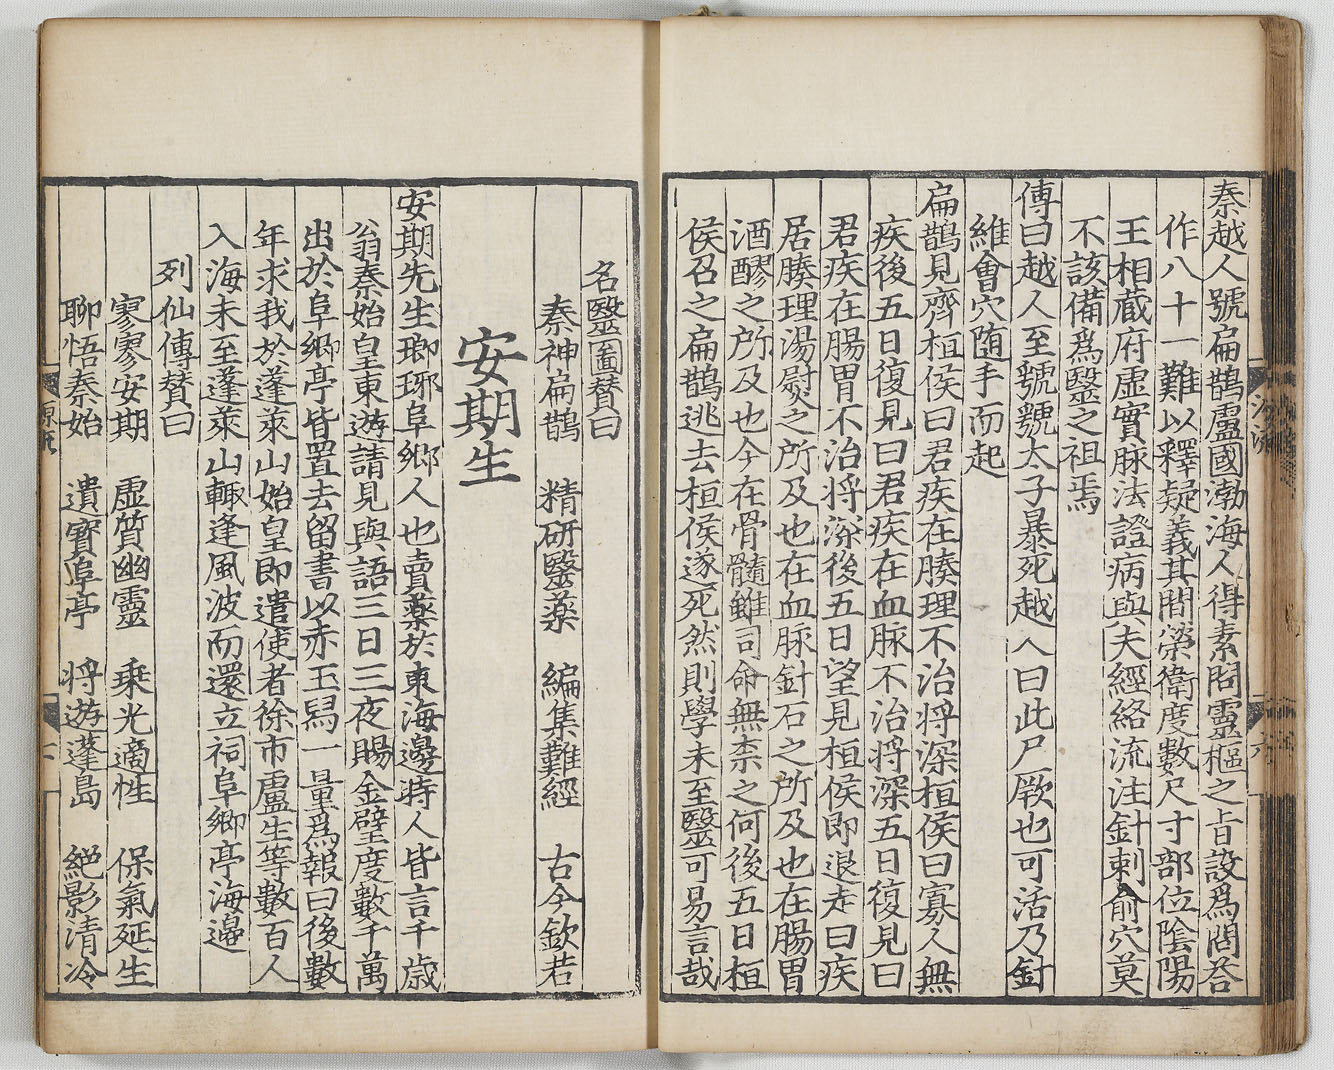 秦越人號扁鵲盧國渤海人得素問靈樞之旨設爲問荅
作八十一難以釋疑義其間榮衛度數尺寸部位陰陽
王相藏府虛實脉法證病與夫經絡流注針刺俞穴莫
不該備爲醫之祖焉
傳曰越人至虢虢太子暴死越人曰此尸厥也可活乃針
維會穴随手而起
扁鵲見齊桓侯曰君疾在腠理不治将深桓侯曰寡人無
疾後五日復見曰君疾在血脉不治将深五日復見曰
君疾在腸胃不治将深後五日望見桓侯即退走曰疾
居腠理湯熨之所及也在血脉針石之所及也在腸胃
酒醪之所及也今在骨髓雖司命無柰之何後五日桓
侯召之扁鵲逃去桓侯遂死然則學未至醫可易言哉
名醫圖賛曰
秦神扁鵲 精研醫藥 編集難經 古今欽若
安期生
安期先生瑯琊阜郷人也賣藥於東海邊時人皆言千歳
翁秦始皇東遊請見與語三日三夜賜金璧度數千萬
出於阜郷亭皆置去留書以赤玉舄一量爲報曰後數
年求我於蓬萊山始皇即遣使者徐市盧生等數百人
入海未至蓬萊山輙逢風波而還立祠阜郷亭海邊
列仙傳賛曰
寥寥安期 虛質幽靈 乗光適性 保氣延生
聊悟秦始 遺寳阜亭 将遊蓬島 絕影清冷